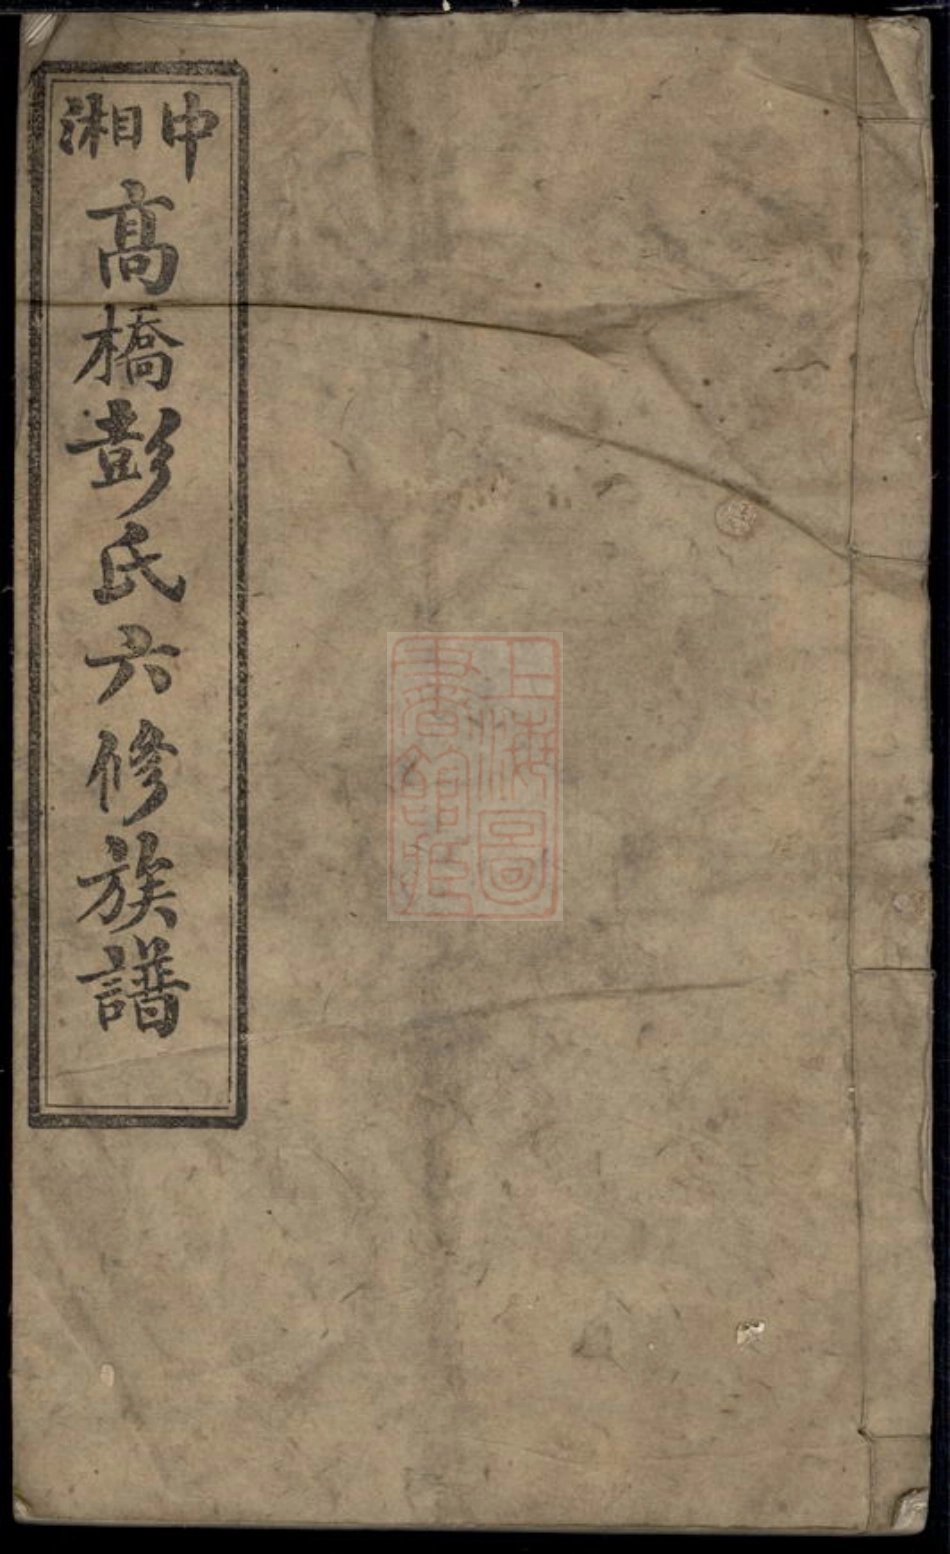 中湘
高橋彭氏六修族譜
上海圖
書館藏